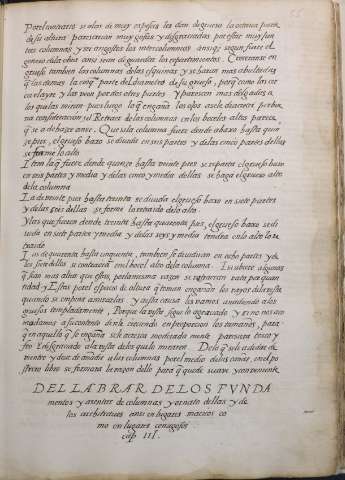 Por el contrario si olas de muy espesses les dan de grueso la octava parte
de su altura pareceran muy gosas y desgraciadas por estar muy jun
tas columnas y ser angostos los intercolumnios ansi q segun fuere el
genero dela obra ansi seran de guardar los repartimientos. Conviene en
gruesar tambien las columnas delas esquinas y se hazen mas abultadas
q las demas la cinq parte del diametro de su grueso, porq como las cer
ca el ayre y las vee por dos o tres partes y parecen mas delgadas a
los q las miren pues luego lo q engaña los ojos a sele de acrecer por bue
na consideracion. El Retraer de las columnas en los boceles altos parece
q se a de hazer ansi. Que si la columna fuere dende abaxo hasta quin
ze pies, el grueso baxo se divida en seis partes y delas cinco partes dellas
se forme lo alto.
Item la q fuere dende quinze hasta veinte pies se reparta el grueso baxo
en seis partes y media y delas cinco y media dellas se haga el grueso alto
dela columna
La de veinte pies hasta treinta se divida el grueso baxo en siete partes
y delas seis dellas se forme la retraido delo alto.
Y las que fueren dende treinta hasta quarenta pies, el grueso baxo se di
vida en siete partes y media y delas seys y media tendra en lo alto lo re
traido
Las de quarenta hasta cinquenta, tambien se dividiran en ocho partes y de
las siete dellas se contraera en el bocel alto dela columna. Y si uviere algunas
q sean mas altas que estas, por la misma razon se retraeran para
cantidad y Estas por el espacio de altura q toman engañan los rayos dela vista
quando se empina a mirarlas y a esta causa les vamos anadiendo a los
gruesos templadamente, Porque la vista sigue lo agraciado y si no nos aco
modamos a su contento de ir creciendo en proporcion los tamaños, para
q en aquello q se engaña se le acreciente moderadamente pareceria tosco y
feo El desgraciado ala vista delos q uali miraren. Delo q se le a de añadir
veintre y dese de añadir a las columnas por el medio delas cañas, en el po
strero libro se formara la razon dello para q quede suave y conveniente.
DEL LABRAR DE LOS FVNDA
mentos y asentar de columnas y ornato dellas y de
los architraves ansi en lugares macicos co
mo en lugares concegosos
cap III.